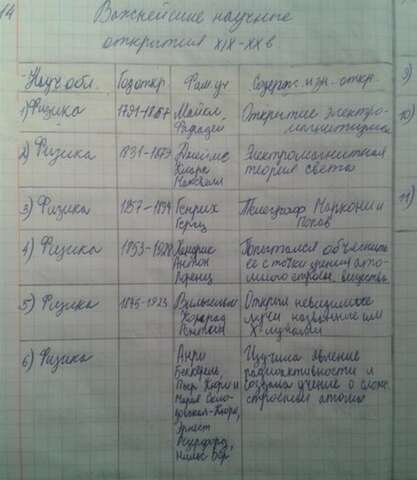 14
Важнейшие научные
открытия XIX-XXв
Науч обл. Год откр. Фам. уч Содерж. и зн. откр.
1) Физика 1791-1867 Майкл Открытие электро-
Фарадей магнетизма
2) Физика 1831-1879 Джеймс Электромагнитная
Кларк теория света
Максвелл
3) Физика 1857-1894 Генрих Телеграф Маркони и
Герц Попов
4) Физика 1853-1928 Хендрик Попытался объяснить
Антон ее с точки зрения ато-
Лоренц много строен. вещества
5) Физика 1845-1923 Вильгельм Открыл невидимые
Конрад лучи названные им
Рентген X-лучами
6) Физика Анри Изучили явление
Беккерель, радиоактивности и
Пьер Кюри и создали учение о слож.
Мария Скло- строении атома
довская-Кюри,
Эрнест
Резерфорд,
Нильс Бор
9)
10)
11)